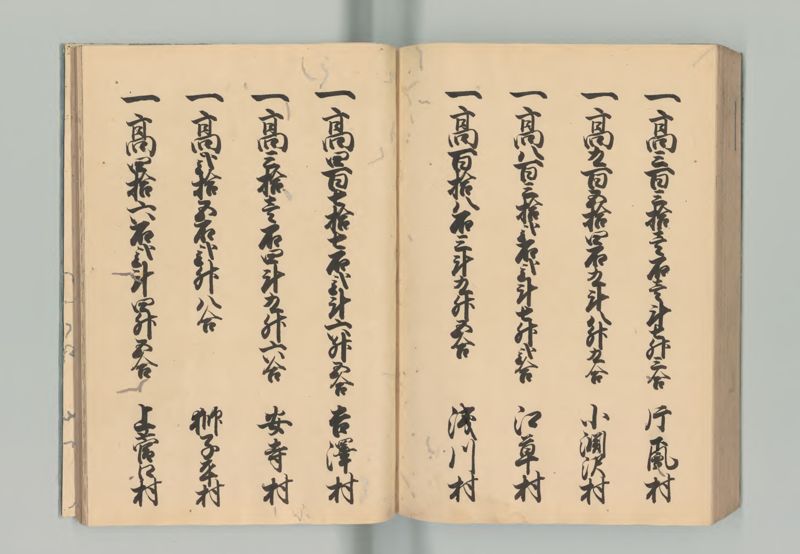 一高三百三拾壱石壱斗七升三合 片颪村
一高九百五拾四石九斗八升九合 小淵沢村
一高八百三拾弐石弐斗七升弐合 江草村
一高百拾八石三斗九升五合 浅川村
一高四百七拾七石弐斗六升五合 吉澤村
一高三拾壱石四斗九升六合 安寺村
一高弐拾五石弐升八合 獅子平村
一高四拾六石弐斗四升五合 上菅口村